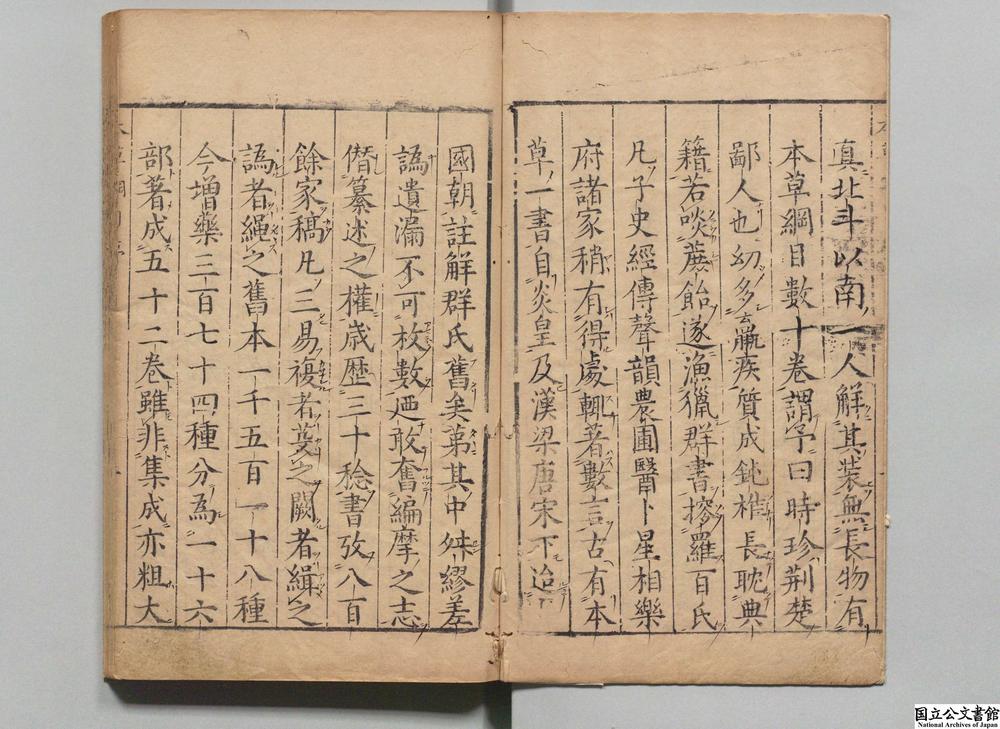 真北斗以南一人解其装無長物有
本草綱目數十卷謂予曰時珍荆楚
鄙人也幼多羸疾質成鈍椎長耽典
籍若啖蔗飴遂漁獵群書搜羅百氏
凡子史經傳聲韻農圃醫卜星相樂
府諸家稍有得處輙著數言古有本
草一書自炎皇及漢梁唐宋下迨
國朝註解群氏舊矣第其中舛繆差
譌遺漏不可枚數廼敢奮編摩之志
僭纂述之權歲歷三十稔書攷八百
餘家稿凡三易複者芟之闕者緝之
譌者繩之舊本一千五百一十八種
今增藥三百七十四種分爲一十六
部著成五十二卷雖非集成亦粗大
国立公文書館
National Archives of Japan